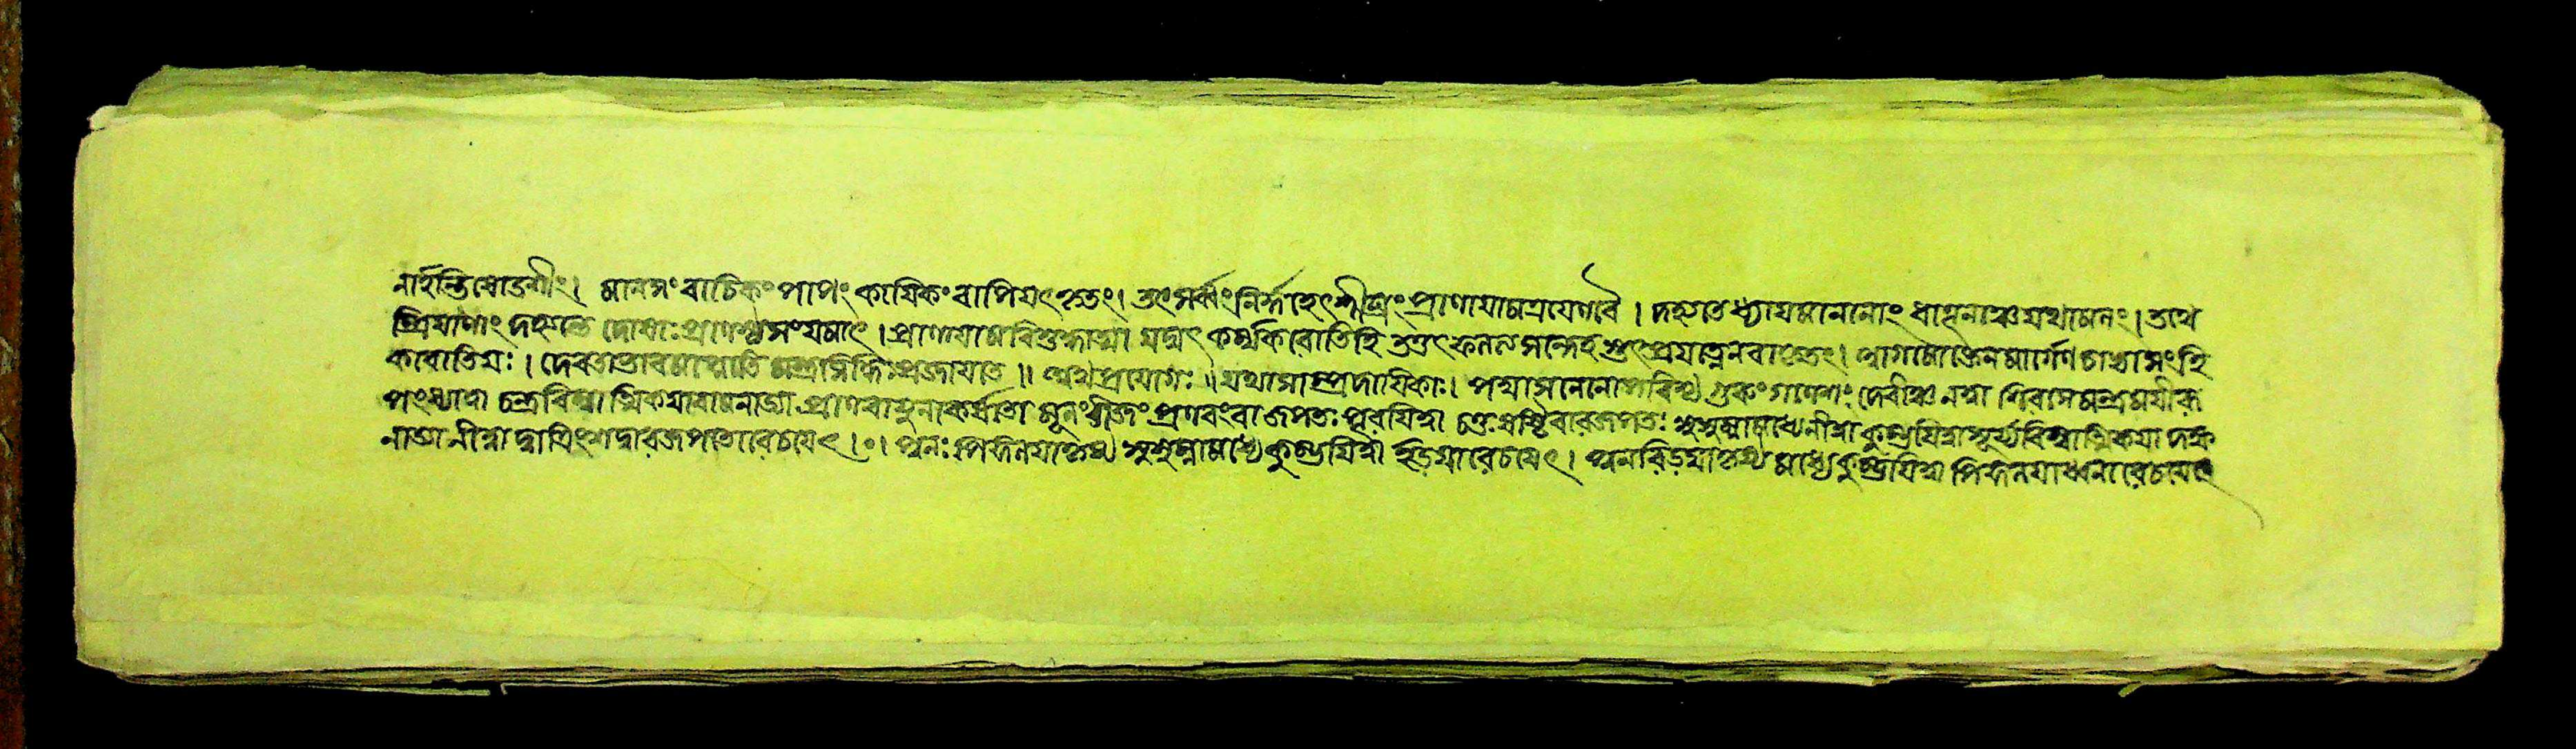 নার্হন্তি ষোডশীং। মানসং বাচিকং পাপং কাযিকং বাপি যৎ কৃতং। তৎ সর্ব্বং নির্দ্দহেৎ শীঘ্রং প্রাণাযামত্রযেণ বৈ। দহ্যতে ধ্মাযমানানাং ধাতূনাঞ্চ যথা মলং। তথে
ন্দ্রিযাণাং দহ্যন্তে দোষাঃ প্রাণস্য সংযমাৎ। প্রাণাযামবিশুদ্ধাত্মা যদ্যৎ কর্ম্ম করোতি হি তত্তৎ ফলতি সন্দেহ প্রযত্নেন। আগমোক্তেন মার্গেণ সংহি
করোতি যঃ। দেবতাভাবমাপ্নোতি মন্ত্রসিদ্ধিঃ প্রজাযতে॥ অথ প্রযোগঃ॥ যথা সাম্প্রদাযিকাঃ। পদ্মাসনেনোপবিশ্য গুরুং গণেশং দেবীঞ্চ নত্বা শিরসি মন্ত্রমযীং
পং ধ্যাত্বা চন্দ্রবিম্বাত্মিকযা বামনাড্যা প্রাণবাযুনাকর্ষ্য মূলং বীজং প্রণবং বা জপতঃ পূরযিত্বা চতুঃষষ্টিবারজপতঃ সুষুম্নামধ্যে নীত্বা কুম্ভযিত্বা সূর্য্যবিম্বাত্মিকযা দক্ষ
নাড্যা নীত্বা দ্বাত্রিংশদ্বারজপতো রেচযেৎ।০। পুনঃ পিঙ্গলযাপূর্য্য সুষুম্নামধ্যে কুম্ভযিত্বা ইডযা রেচযেৎ। পুনরিডযাপূর্য্য মধ্যে কুম্ভযিত্বা পিঙ্গলযা রেচযেৎ